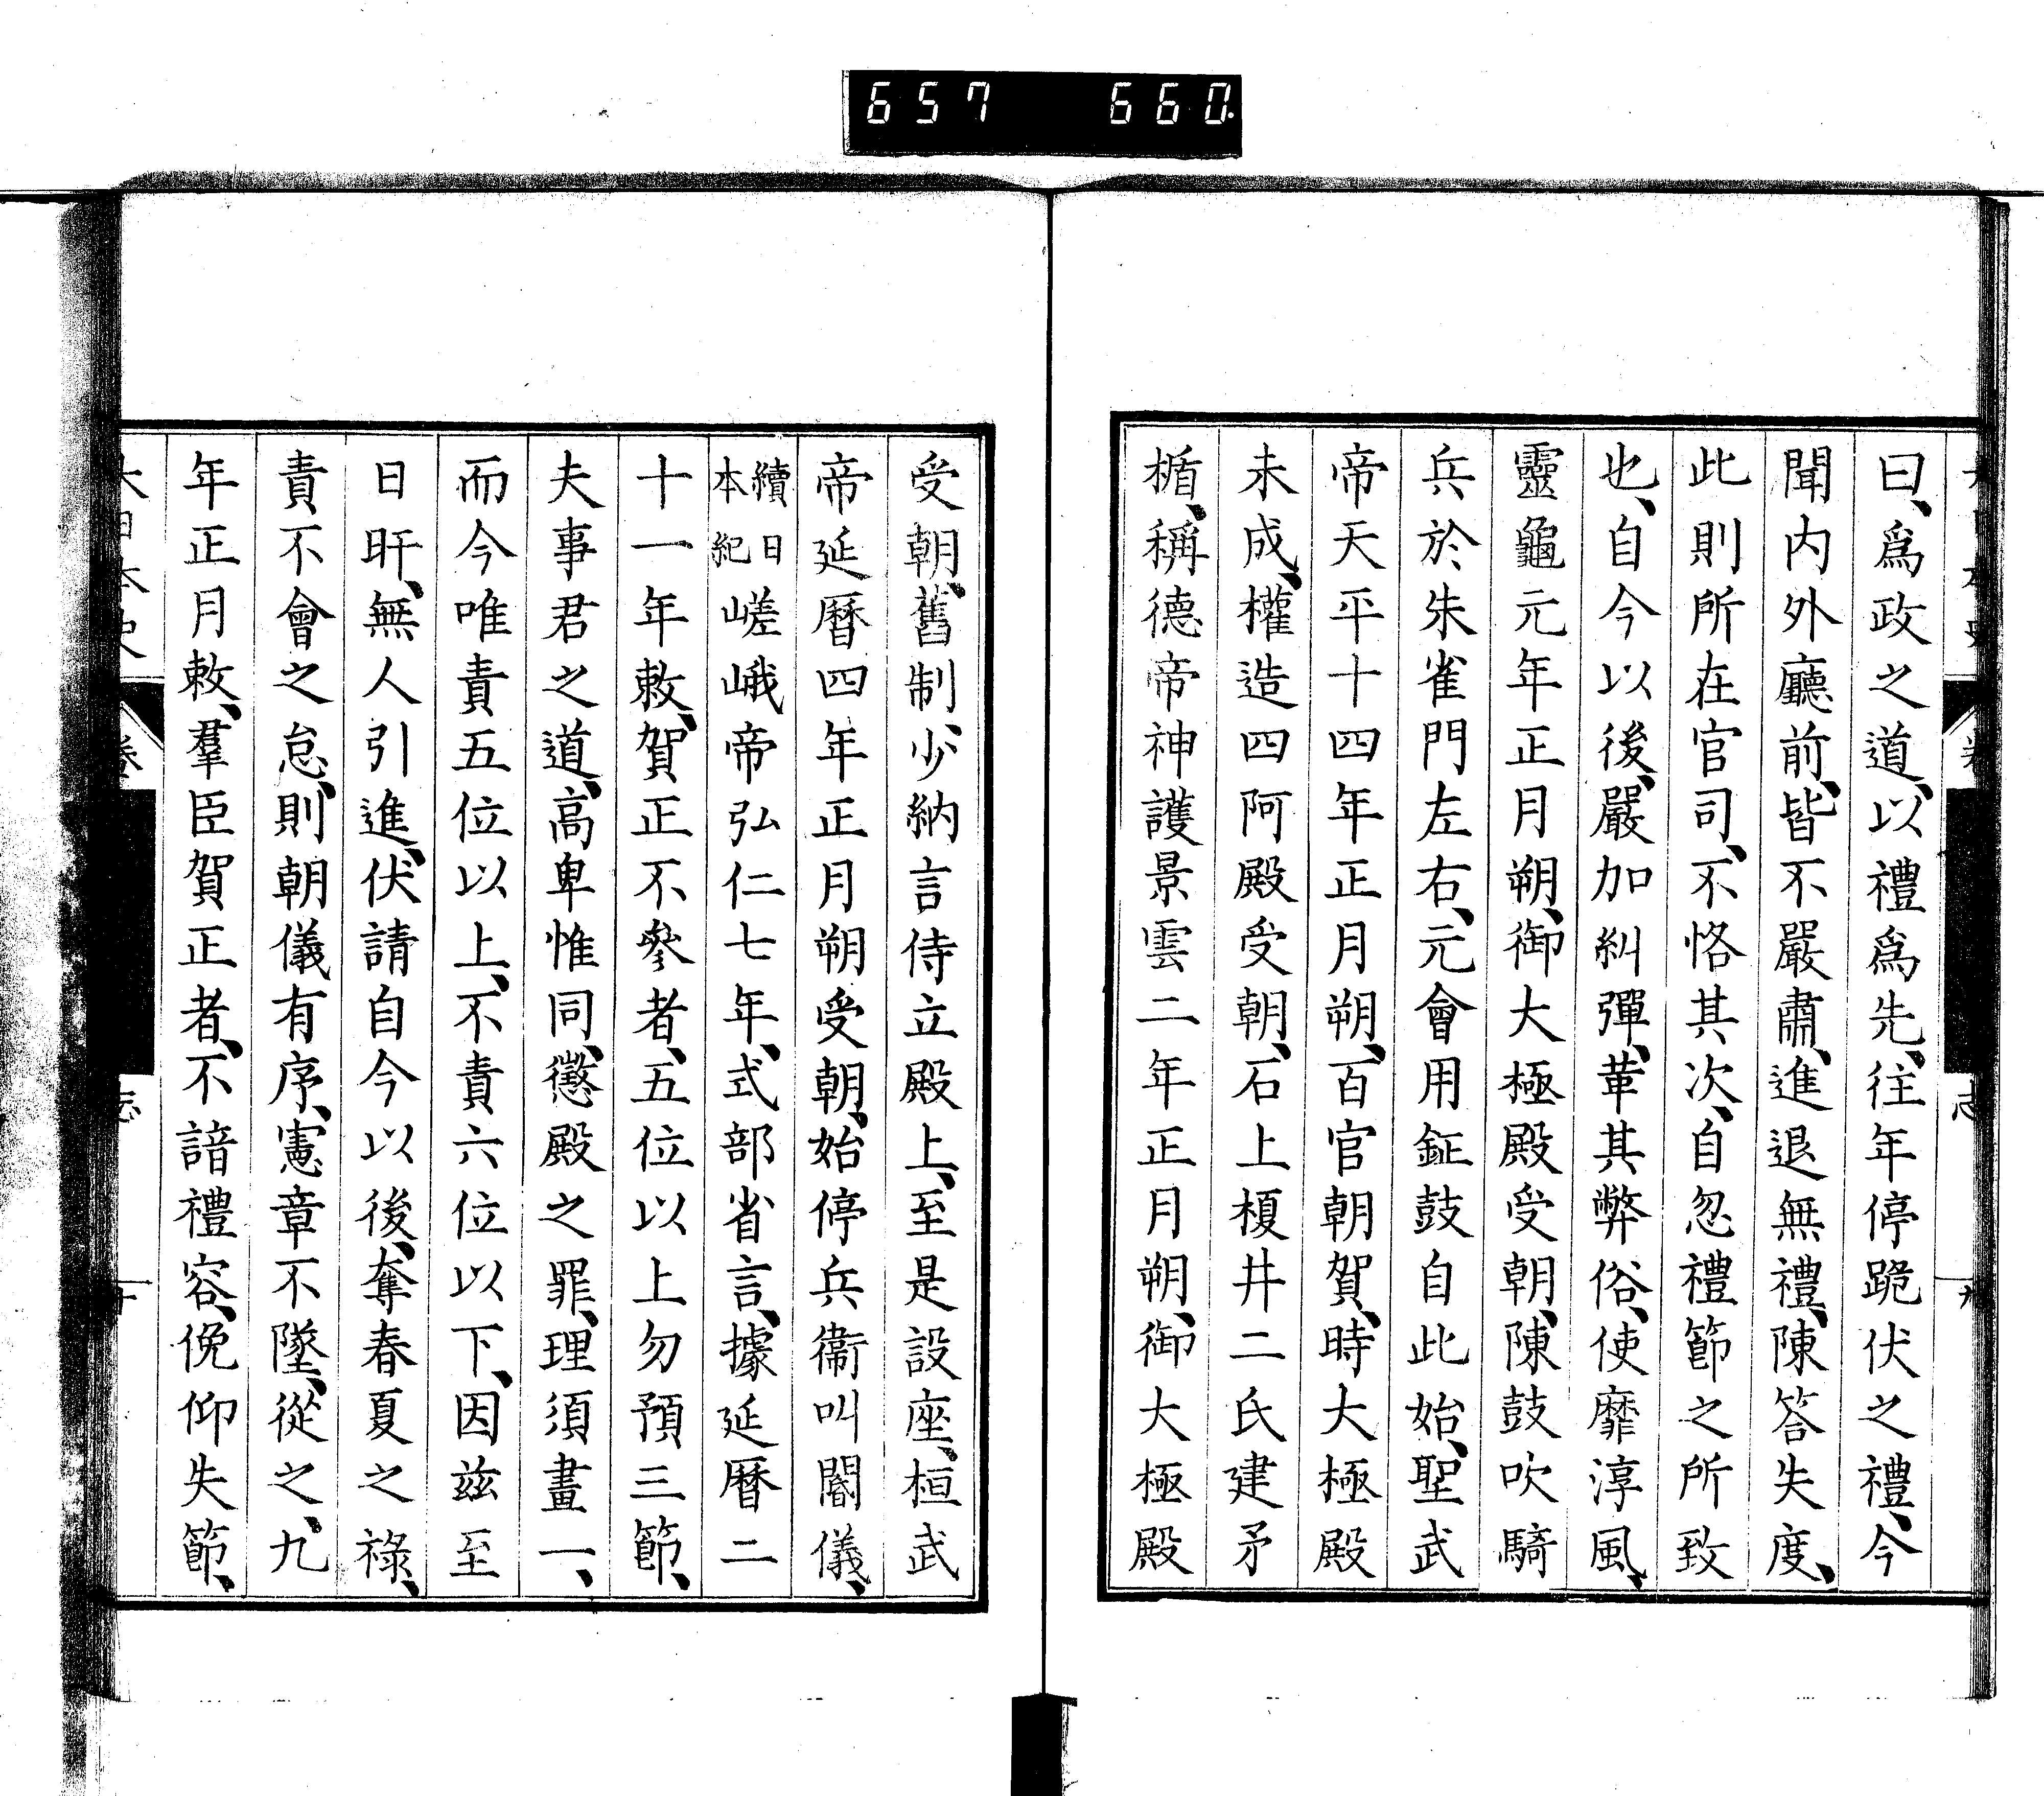 657 660.
曰、爲政之道、以禮爲先、往年停跪伏之禮、今
聞内外廳前、皆不嚴肅、進退無禮、陳答失度、
此則所在官司、不恪其次、自忽禮節之所致
也、自今以後、嚴加糾彈、革其弊俗、使靡淳風、
靈龜元年正月朔、御大極殿受朝、陳鼓吹騎
兵於朱雀門左右、元會用鉦鼓自此始、聖武
帝天平十四年正月朔、百官朝賀、時大極殿
未成、權造四阿殿受朝、石上榎井二氏建矛
楯、稱德帝神護景雲二年正月朔、御大極殿
受朝、舊制、少納言侍立殿上、至是設座、桓武
帝延曆四年正月朔受朝、始停兵衞叫閽儀、
續日
本紀
嵯峨帝弘仁七年、式部省言、據延曆二
十一年敕、賀正不參者、五位以上勿預三節、
夫事君之道、高卑惟同、懲殿之罪、理須畫一、
而今唯責五位以上、不責六位以下、因茲至
日旰、無人引進、伏請自今以後、奪春夏之祿、
責不會之怠、則朝儀有序、憲章不墜、從之、九
年正月敕、羣臣賀正者、不諳禮容、俛仰失節、
大日本史 卷 志 十